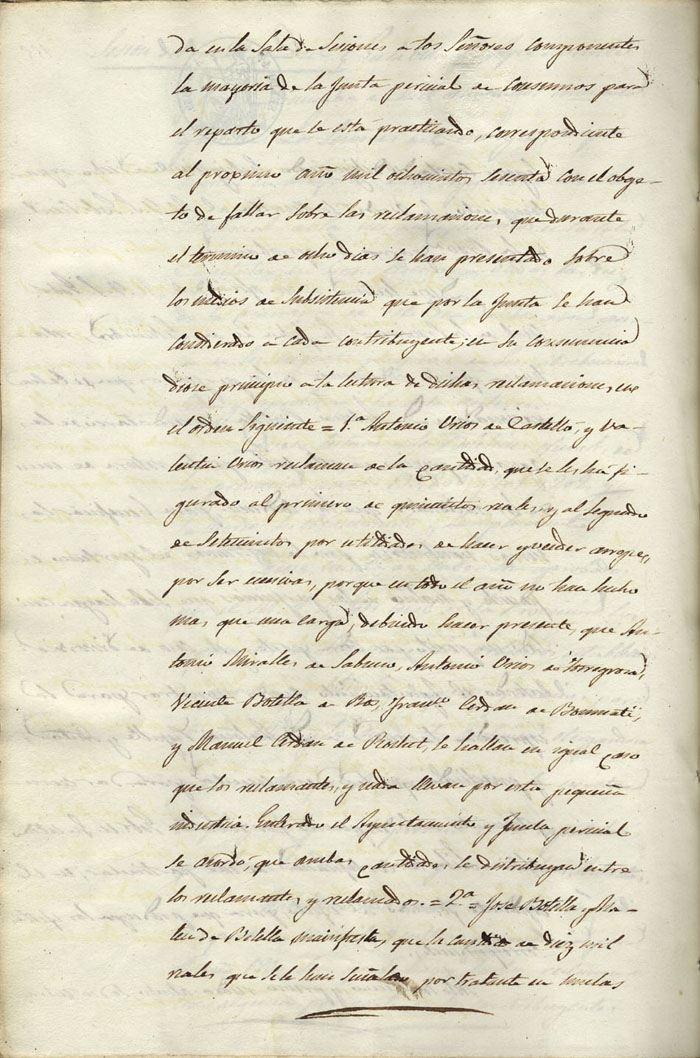 da en la Sala de Sesiones a los Señores componentes
la mayoria de la Junta pericial de Consumos para
el reparto que se está practicando, correspondiente
al proximo año mil ochocientos sesenta con el obge-
to de fallar sobre las reclamaciones, que durante
el termino de ocho dias se han presentado sobre
los medios de subsistencia que por la Junta se han
considerado a cada contribuyente; en su consecuencia
diose principio a la lectura de dichas reclamaciones, en
el orden siguiente = 1.ª Antonio Urios de Castelló, y Va-
lentin Urios reclaman de la cantidad, que se les há fi-
gurado al primero de quinientos reales, y al segundo
de setecientos por utilidades de hacer y vender arrope,
por ser escesivas, porque en todo el año no han hecho
mas, que una carga; debiendo hacer presente, que An-
tonio Miralles de Sabuco, Antonio Urios de Torregrosa,
Vicente Botella de Ros, Fran.co Cerdan de Bonmati,
y Manuel Cerdan de , se hallan en igual caso
que los reclamantes, y nada llevan por esta pequeña
industria. Enterado el Ayuntamiento y Junta pericial
se acordó, que ambas cantidades, se distribuyan entre
los reclamantes, y reclamados. = 2.ª = José Botella y Ma-
teu de Botella manifiesta, que la cantidad de diez mil
reales que se le han señalado por tratante en mulas